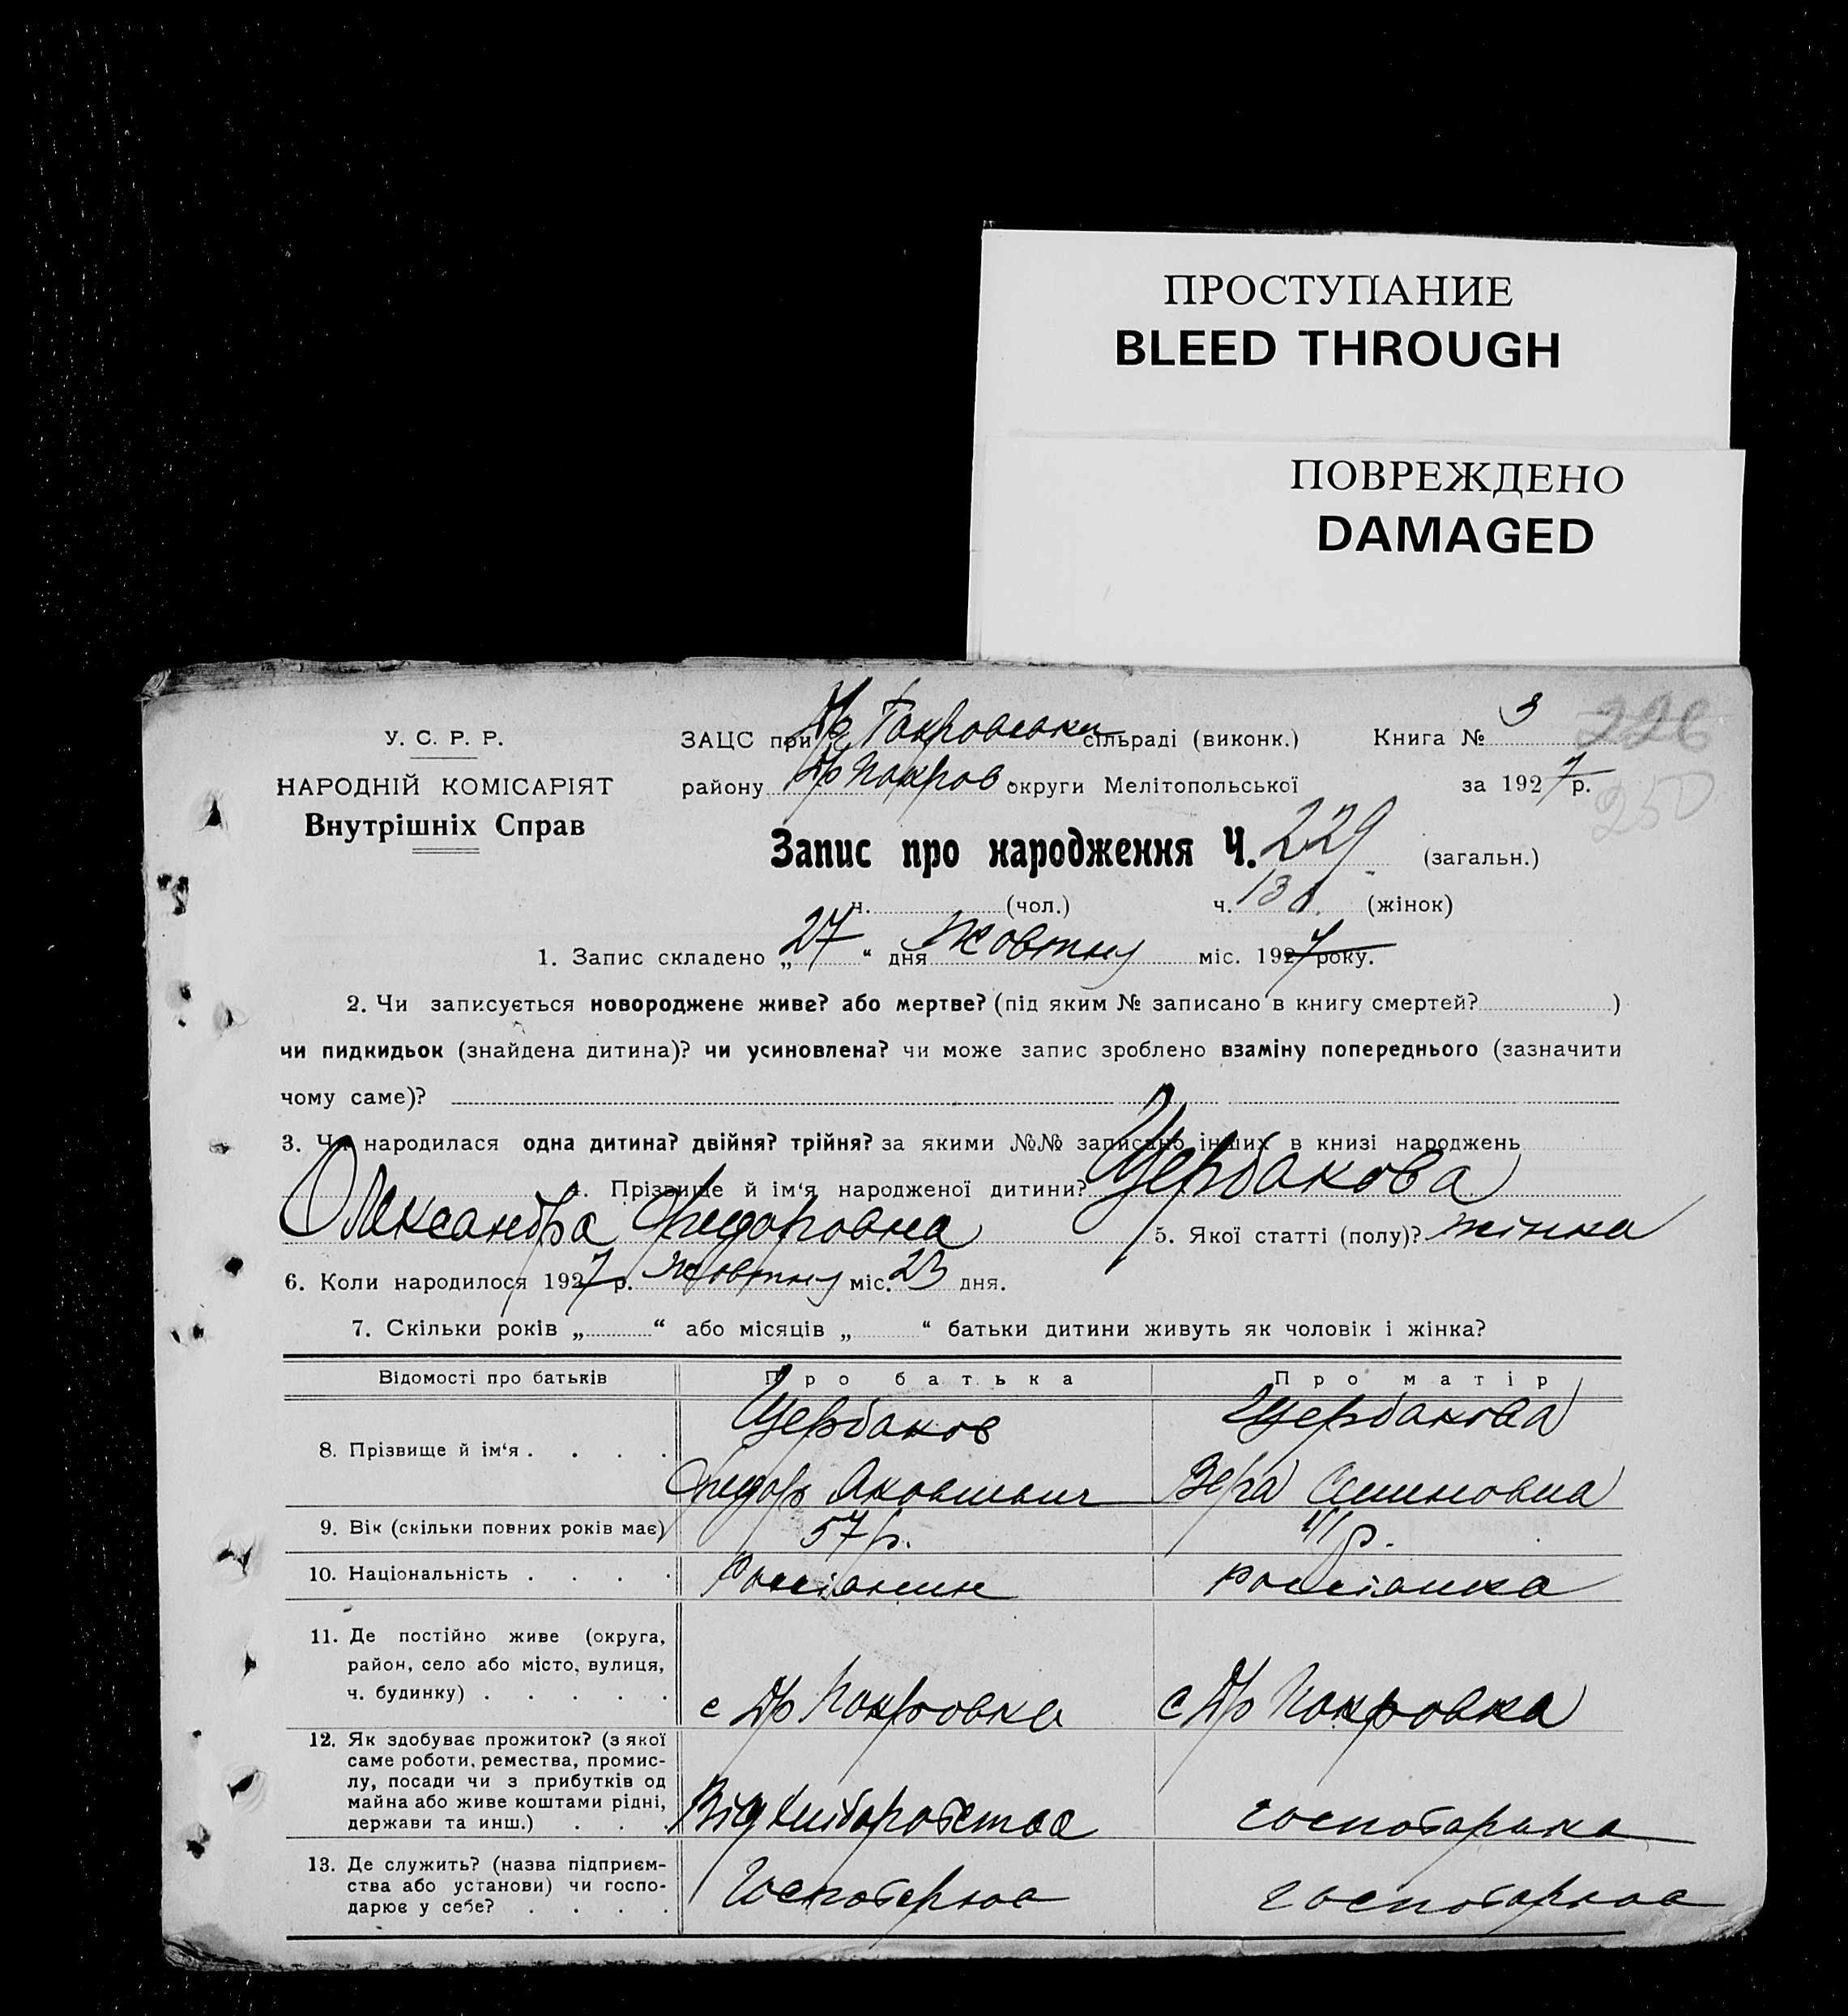 ПРОСТУПАНИЕ
BLEED THROUGH
ПОВРЕЖДЕНО
DAMAGED
У. С. Р. Р.
НАРОДНІЙ КОМІСАРІЯТ
Внутрішніх Справ
ЗАЦС при сільраді (виконк.) Книга № 3
226
району округи Мелітопольської за 1927 р.
250
Запис про народження Ч. 229 (загальн.)
ч. (чол.) ч. (жінок)
1. Запис складено „27“ дня Жовтня міс. 1927 року.
2. Чи записується новороджене живе? або мертве? (під яким № записано в книгу смертей? )
чи пидкидьок (знайдена дитина)? чи усиновлена? чи може запис зроблено взаміну попереднього (зазначити
чому саме)?
3. Чи народилася одна дитина? двійня? трійня? за якими №№ записано інших в книзі народжень
4. Прізвище й ім‘я народженої дитини? Щербакова
Олександра Фидоровна 5. Якої статті (полу)? жінка
6. Коли народилося 1927 р. Жовтня міс. 23 дня.
7. Скільки років „ “ або місяців „ “ батьки дитини живуть як чоловік і жінка?
Відомості про батьків Про батька Про матір
8. Прізвище й ім‘я . . . . Щербаков Щербакова
Фидор Яковлевич Вера Семеновна
9. Вік (скільки повних років має) 57 р. р.
10. Національність . . . . Россіанин россіанка
11. Де постійно живе (округа,
район, село або місто, вулиця,
ч. будинку) . . . . . с Др Покровка с Др Покровка
12. Як здобуває прожиток? (з якої
саме роботи, ремества, промис-
лу, посади чи з прибутків од
майна або живе коштами рідні,
держави та инш.) . . . Від хліборобства
13. Де служить? (назва підприєм-
ства або установи) чи госпо-
дарює у себе? . . . . Господарює господарює